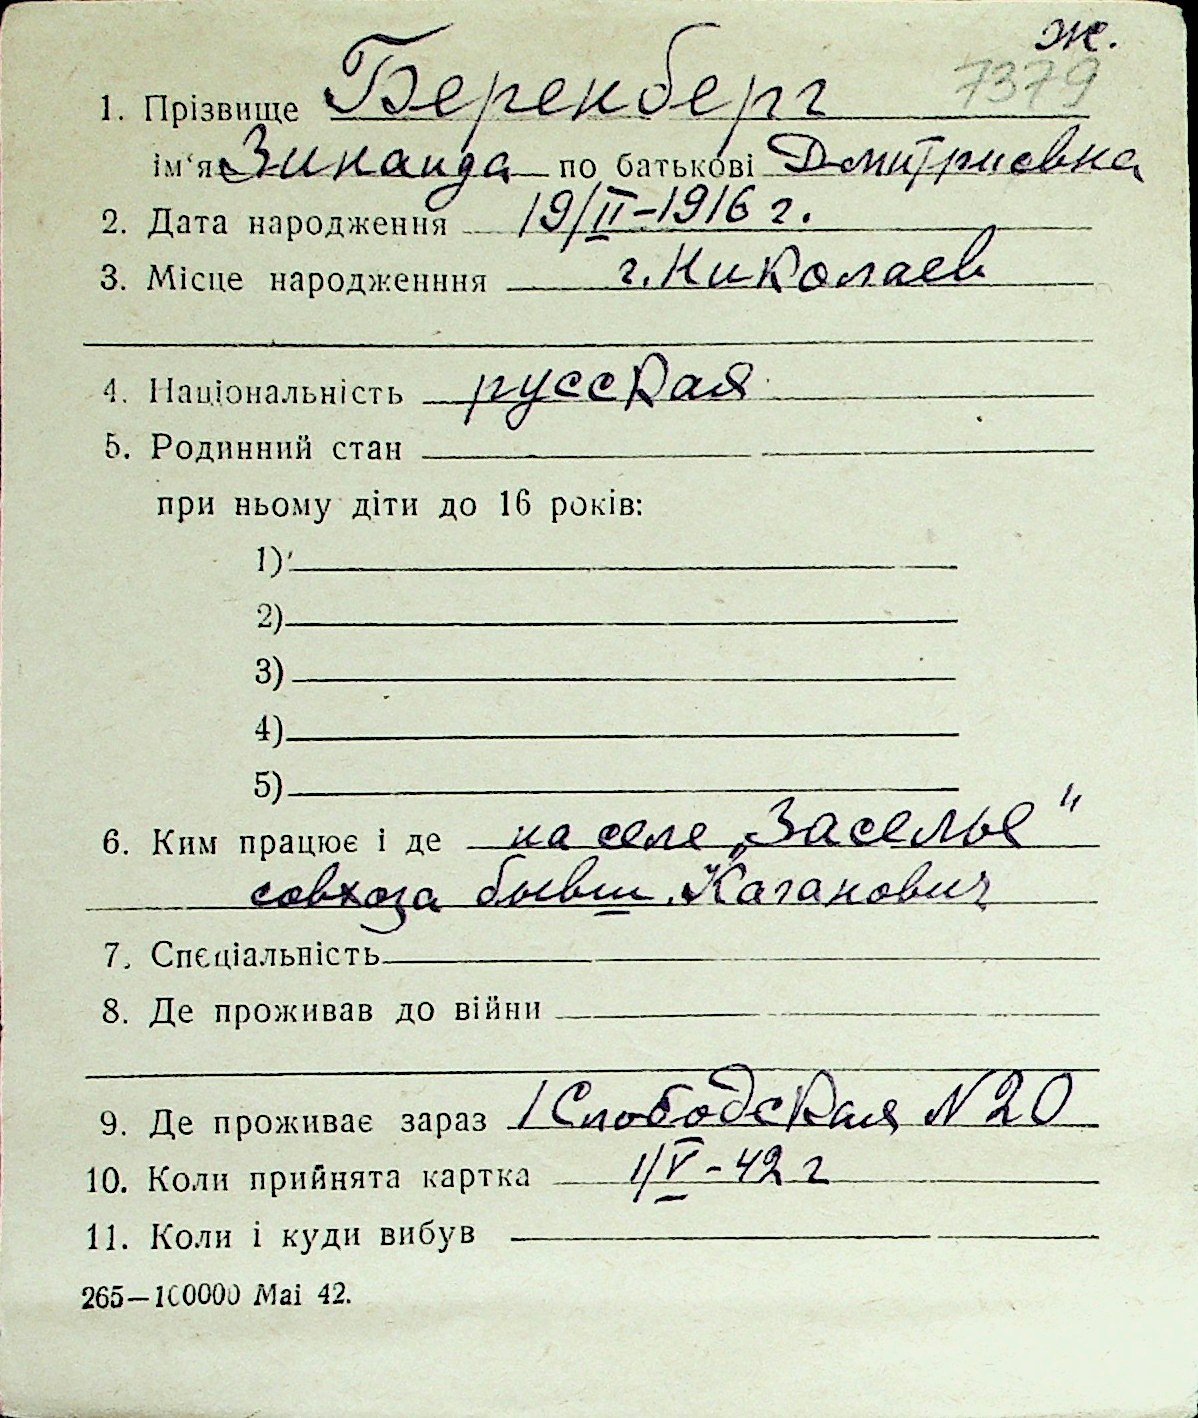 ж.
7379
1. Прізвище Беренберг
ім'я Зинаида по батькові Дмитриевна
2. Дата народження 19/II-1916 г.
3. Місце народженння г. Николаев
4. Національність русская
5. Родинний стан
при ньому діти до 16 років:
1)
2)
3)
4)
5)
6. Ким працює і де на селе „Заселье"
совхоза бывш. Каганович
7. Спєціальність
8. Де проживав до війни
9. Де проживає зараз 1 Слободская N 20
10. Коли прийнята картка 1/V-42 г
11. Коли і куди вибув
265—100000 Mai 42.